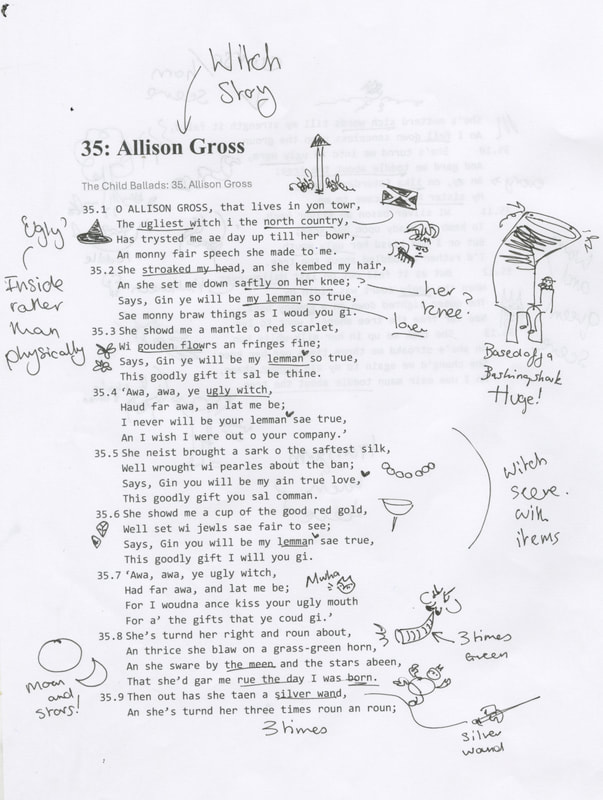 Witch
Story
35: Allison Gross
The Child Ballads: 35. Allison Gross
35.1 O ALLISON GROSS, that lives in yon towr,
The ugliest witch i the north country,
Has trysted me ae day up till her bowr,
An monny fair speech she made to me.
35.2 She stroaked my head, an she kembed my hair,
An she set me down saftly on her knee; ?
Says, Gin ye will be my lemman so true,
Sae monny braw things as I woud you gi.
35.3 She showd me a mantle o red scarlet,
Wi gouden flowrs an fringes fine;
Says, Gin ye will be my lemman so true,
This goodly gift it sal be thine.
35.4 ‘Awa, awa, ye ugly witch,
Haud far awa, an lat me be;
I never will be your lemman sae true,
An I wish I were out o your company.’
35.5 She neist brought a sark o the saftest silk,
Well wrought wi pearles about the ban;
Says, Gin you will be my ain true love,
This goodly gift you sal comman.
35.6 She showd me a cup of the good red gold,
Well set wi jewls sae fair to see;
Says, Gin you will be my lemman sae true,
This goodly gift I will you gi.
35.7 ‘Awa, awa, ye ugly witch,
Had far awa, and lat me be;
For I woudna ance kiss your ugly mouth
For a’ the gifts that ye coud gi.’
35.8 She’s turnd her right and roun about,
An thrice she blaw on a grass-green horn,
An she sware by the meen and the stars abeen,
That she’d gar me rue the day I was born.
35.9 Then out has she taen a silver wand,
An she’s turnd her three times roan an roun;
3 times
'Ugly'
Inside
rather
than
physically
her
knee?
lover
Based off a
Bashing shark
Huge!
Witch
scene.
with
items
Mwha
3 times
Green
Moon
and
stars!
silver
wand